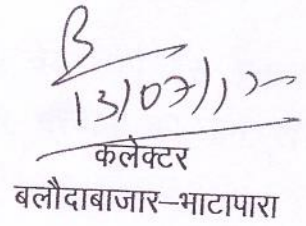 13/07/12
कलेक्टर
बलौदाबाजार–भाटापारा